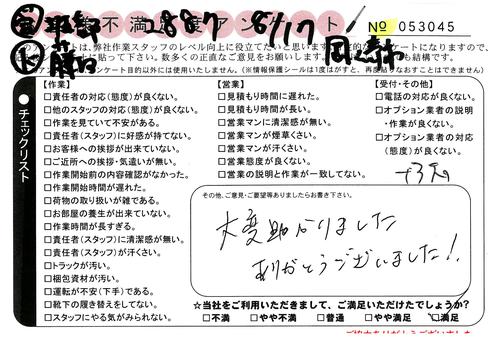 不満足度アンケート
2887 8/17
№ 053045
アンケートは、弊社作業スタッフのレベル向上に役立てたいと思います。
数多くの正直なご意見をお願いします。
アンケート目的以外には使用いたしません。(※情報保護シールは1度はがすと、再度貼りなおすことはできません)
チェックリスト
【作業】
□責任者の対応(態度)が良くない。
□他のスタッフの対応(態度)が良くない。
□作業を見ていて不安がある。
□責任者(スタッフ)に好感が持てない。
□お客様への挨拶が出来ていない。
□ご近所への挨拶・気遣いが無い。
□作業開始前の内容確認がなかった。
□作業開始時間が遅れた。
□荷物の取り扱いが雑である。
□お部屋の養生が出来ていない。
□作業時間が長すぎる。
□責任者(スタッフ)に清潔感が無い。
□責任者(スタッフ)が汗くさい。
□トラックが汚い。
□梱包資材が汚い。
□運転が不安(下手)である。
□靴下の履き替えをしてない。
□スタッフにやる気がみられない。
【営業】
□見積もり時間に遅れた。
□見積もり時間が長い。
□営業マンに清潔感が無い。
□営業マンが煙草くさい。
□営業マンが汗くさい。
□営業態度が良くない。
□営業の説明と作業が一致してない。
【受付・その他】
□電話の対応が良くない。
□オプション業者の説明・作業が良くない。
□オプション業者の対応(態度)が良くない。
その他、ご意見・ご要望等ありましたらお書き下さい。
大変助かりました
ありがとうございました!
☆当社をご利用いただきまして、ご満足いただけたでしょうか?
□不満 □やや不満 □普通 □やや満足 □満足
ご協力ありがとうございました